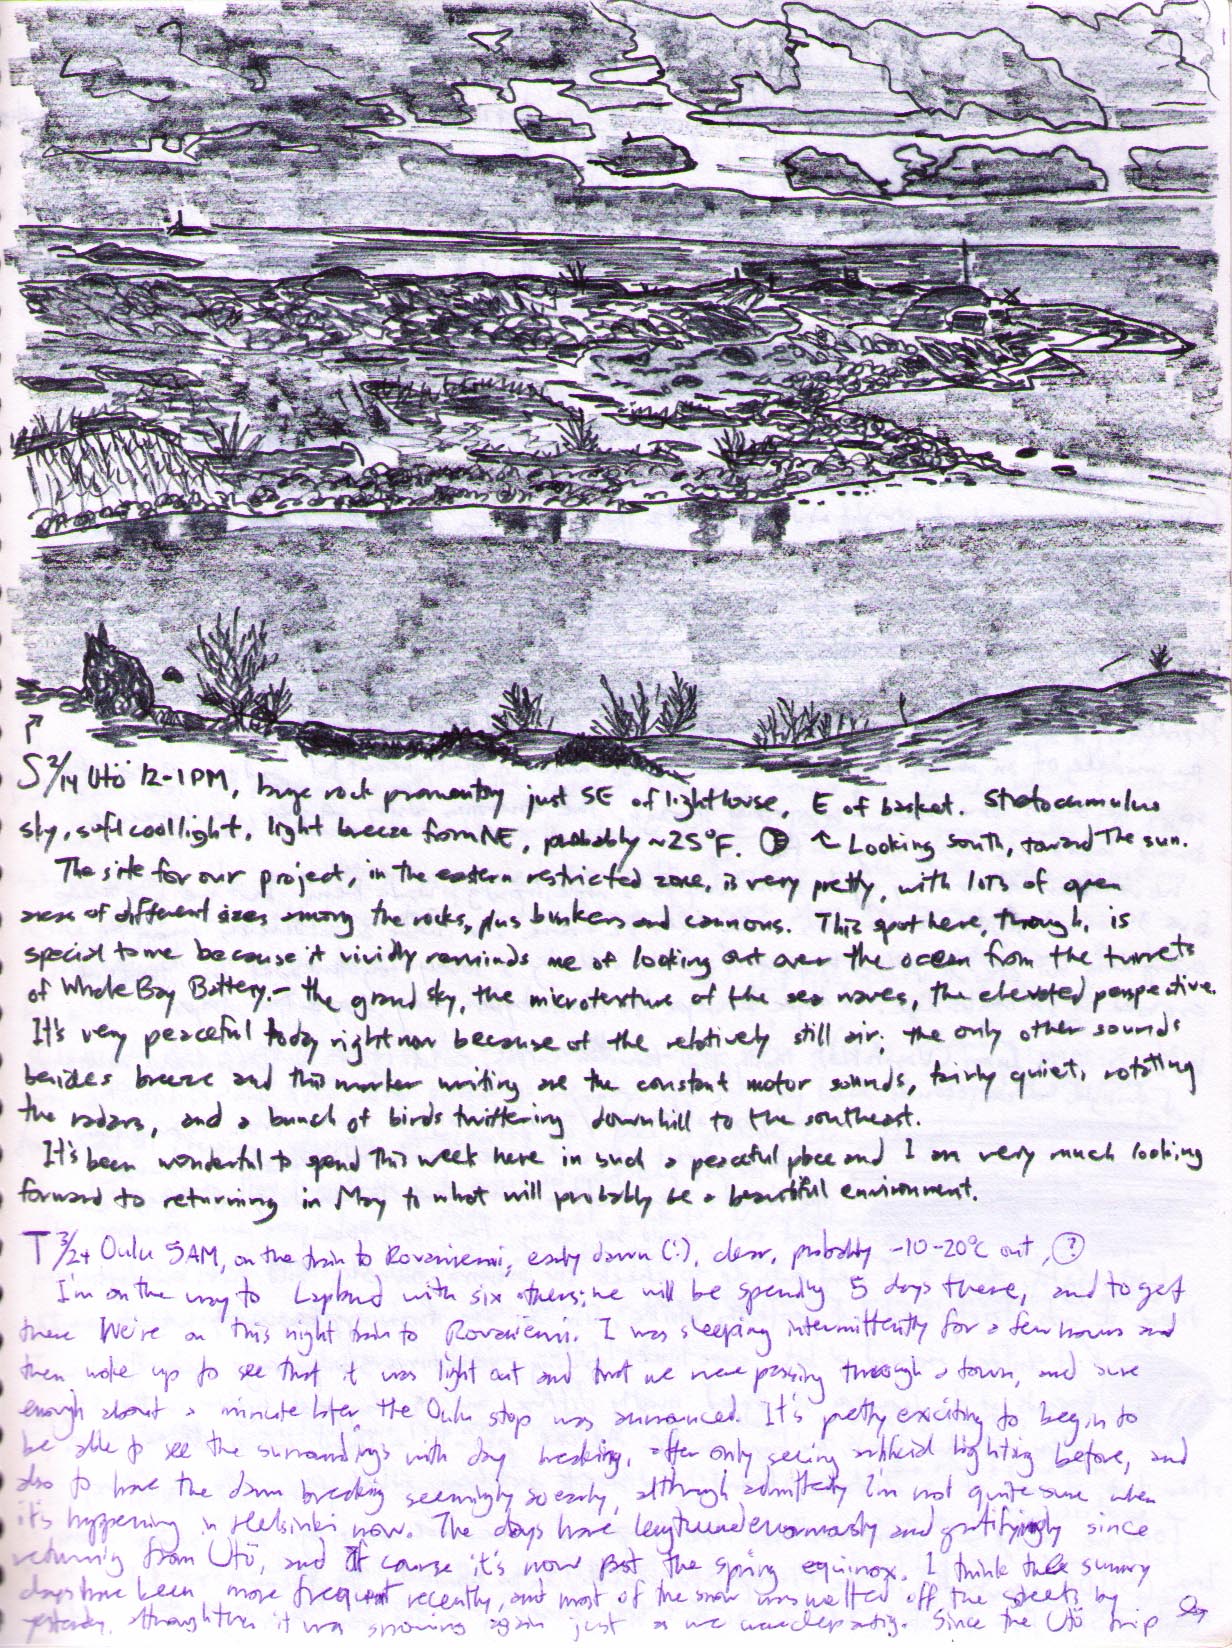 S 2/14 Utö 12-1PM, huge rock promontory just SE of lighthouse, E of basket. Stratocumulus
sky, soft cool light, light breeze from NE, probably ~25°F. ↖ Looking south, toward the sun.
The site for our project, in the eastern restricted zone, is very pretty, with lots of open
areas of different sizes among the rocks, plus bunkers and cannons. This spot here, though, is
special to me because it vividly reminds me of looking out over the ocean from the turrets
of Whale Bay Battery. – the grand sky, the microtexture of the sea waves, the elevated perspective.
It's very peaceful today right now because of the relatively still air; the only other sounds
besides breeze and this marker writing are the constant motor sounds, fairly quiet, rotating
the radars, and a bunch of birds twittering downhill to the southeast.
It's been wonderful to spend this week here in such a peaceful place and I am very much looking
forward to returning in May to what will probably be a beautiful environment.
T 3/24 Oulu 5AM, on the train to Rovaniemi, early dawn (:), clear, probably -10-20°C out, ?
I'm on the way to Lapland with six others; we will be spending 5 days there, and to get
there we're on this night train to Rovaniemi. I was sleeping intermittently for a few hours and
then woke up to see that it was light out and that we were passing through a town, and sure
enough about a minute later the Oulu stop was announced. It's pretty exciting to begin to
be able to see the surroundings with day breaking, after only seeing artificial lighting before, and
also to have the dawn breaking seemingly so early, although admittedly I'm not quite sure when
it's happening in Helsinki now. The days have lengthened enormously and gratifyingly since
returning from Utö, and of course it's now past the spring equinox. I think the sunny
days have been more frequent recently, and most of the snow was melted off the streets by
yesterday, although then it was snowing again just as we were departing. Since the Utö trip